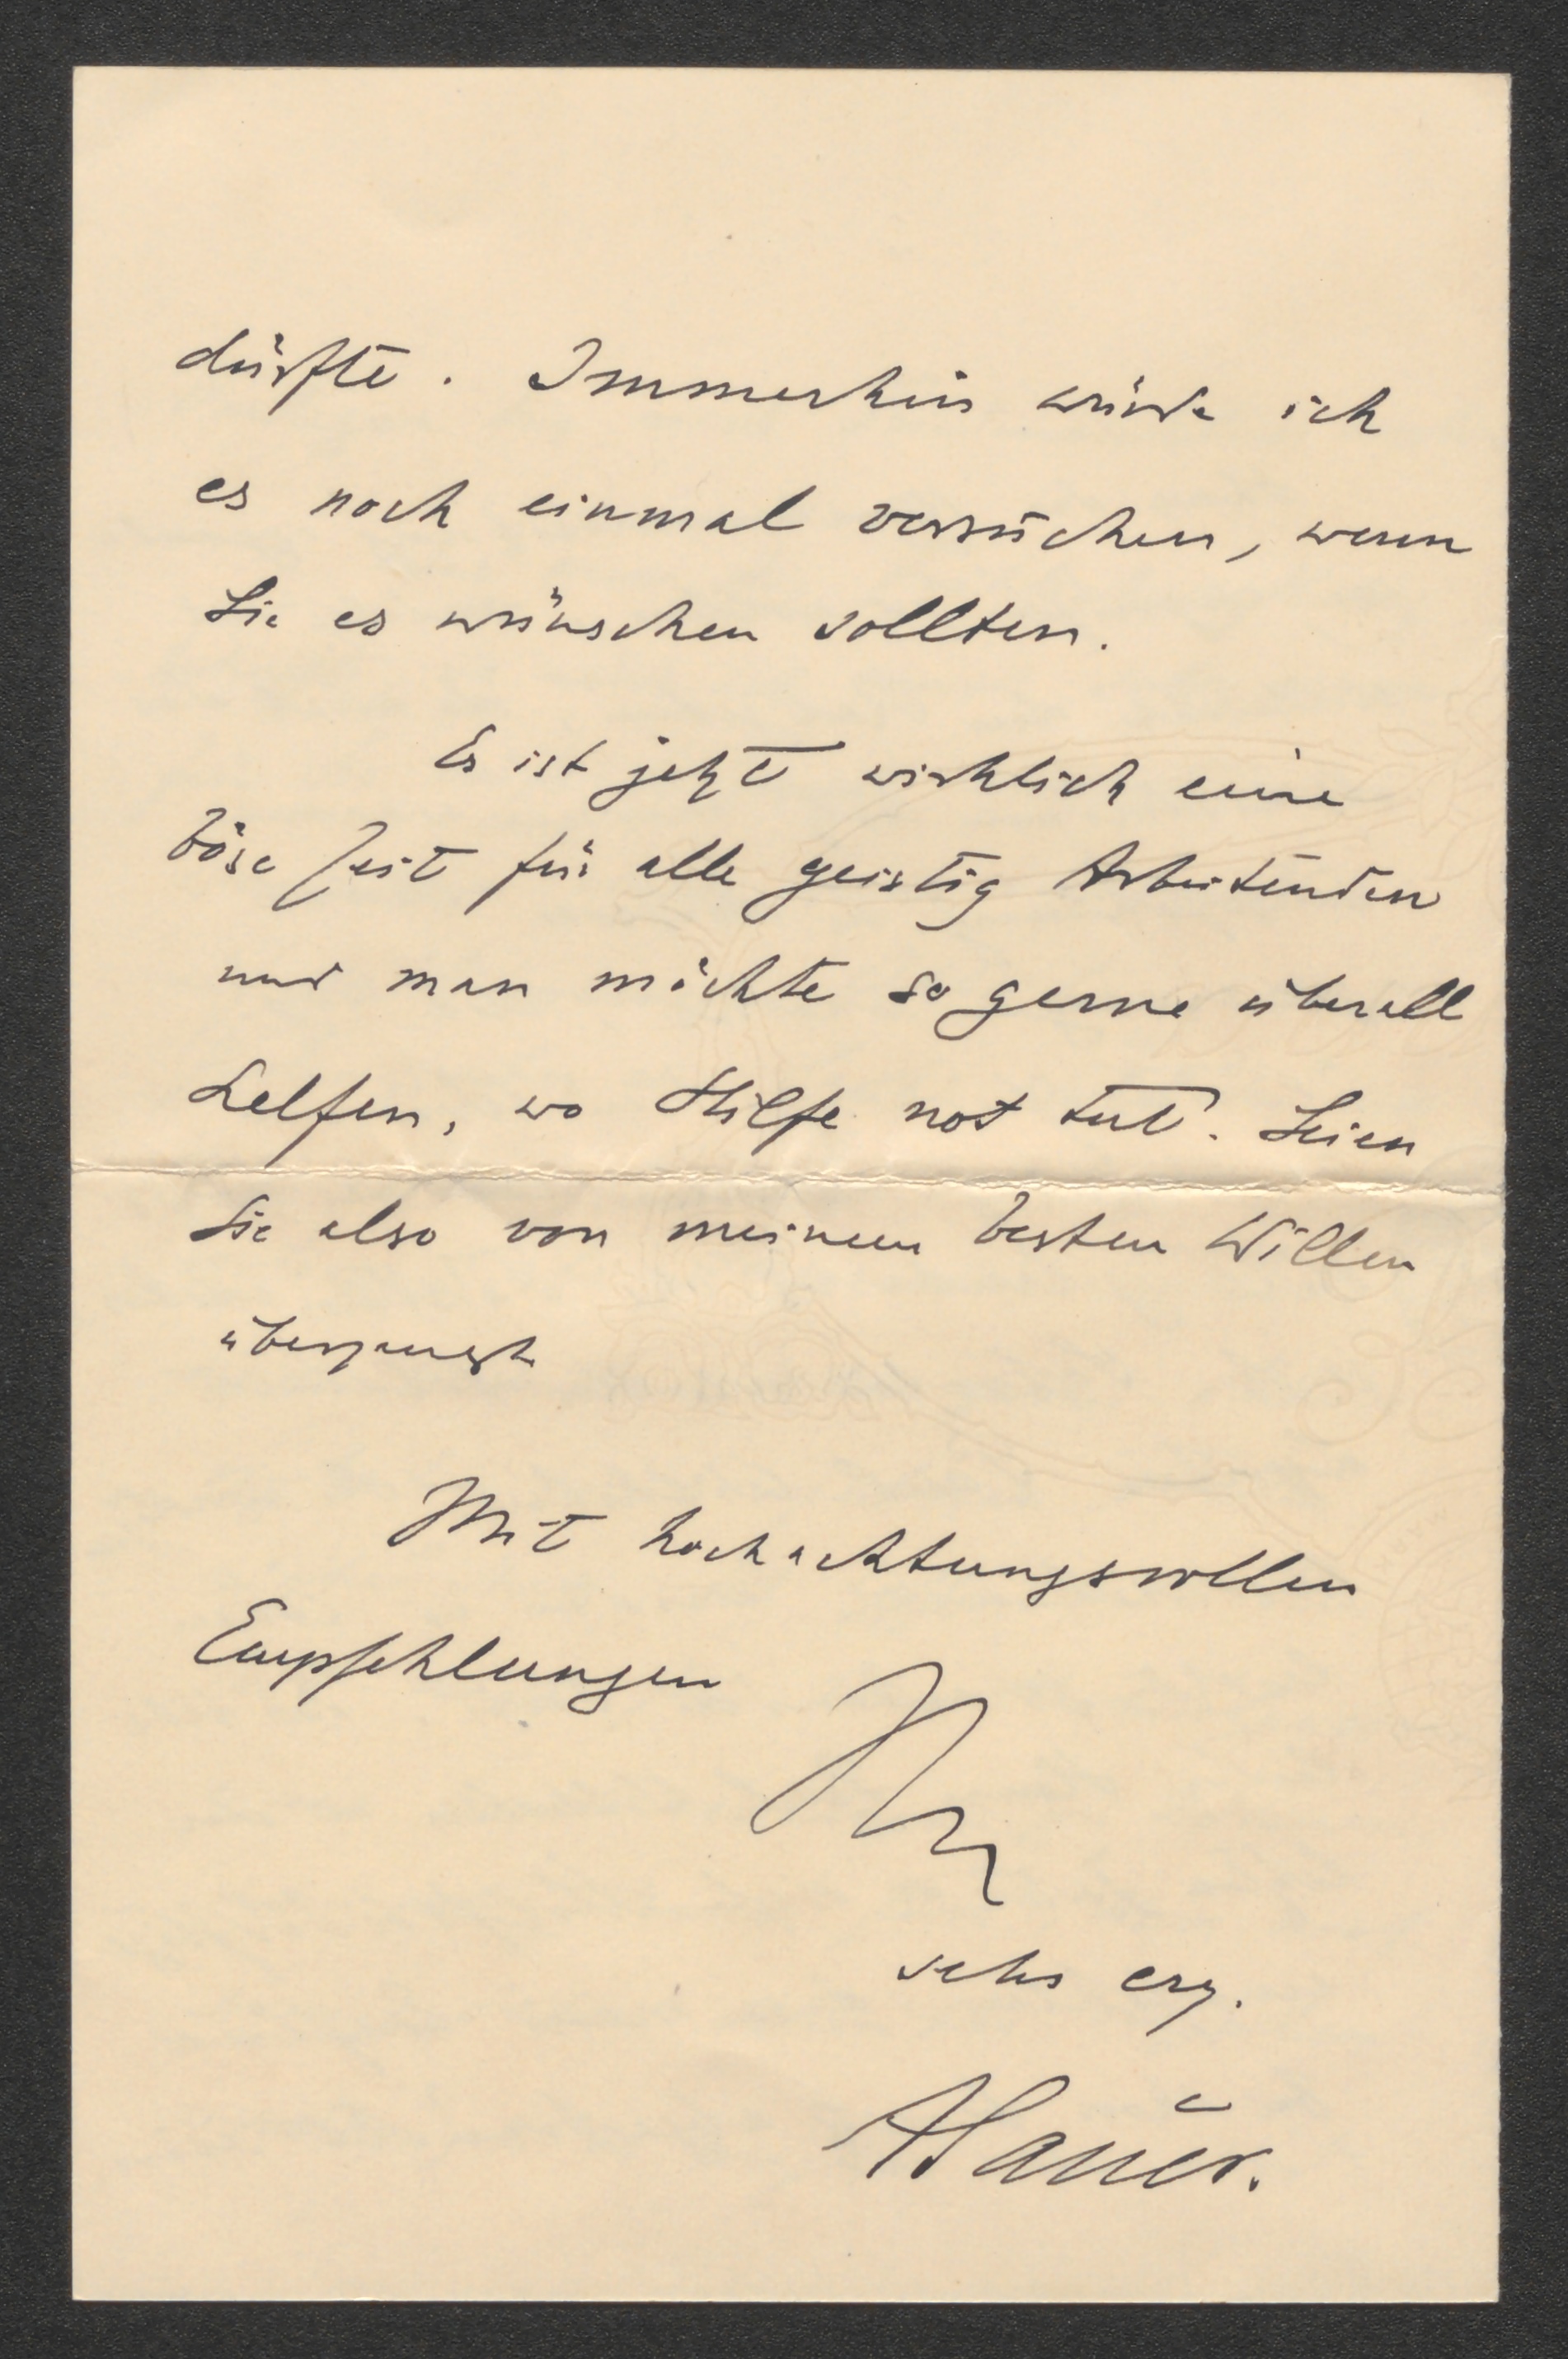 dürfte. Immerhin würde ich
es noch einmal versuchen, wenn
Sie es wünschen sollten.
Es ist jetzt wirklich eine
böse Zeit für alle geistig Arbeitenden
und man möchte so gerne überall
helfen, wo Hilfe not tut. Seien
Sie also von meinem besten Willen
überzeugt
Mit hochachtungsvollen
Empfehlungen
Ihr
sehr erg.
ASauer.